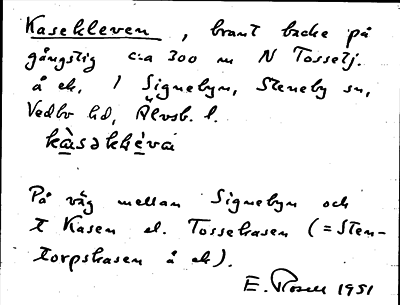 Kasekleven, brant backe på
gångstig c:a 300 m N Tossetj.
å ek, i Signebyn, Steneby sn,
Vedbo hd, Älvsb. l.
kàsəkléva
På väg mellan Signebyn och
t Kasen el. Tossekasen (=Sten-
torpskasen å ek).
E. Rosell 1951